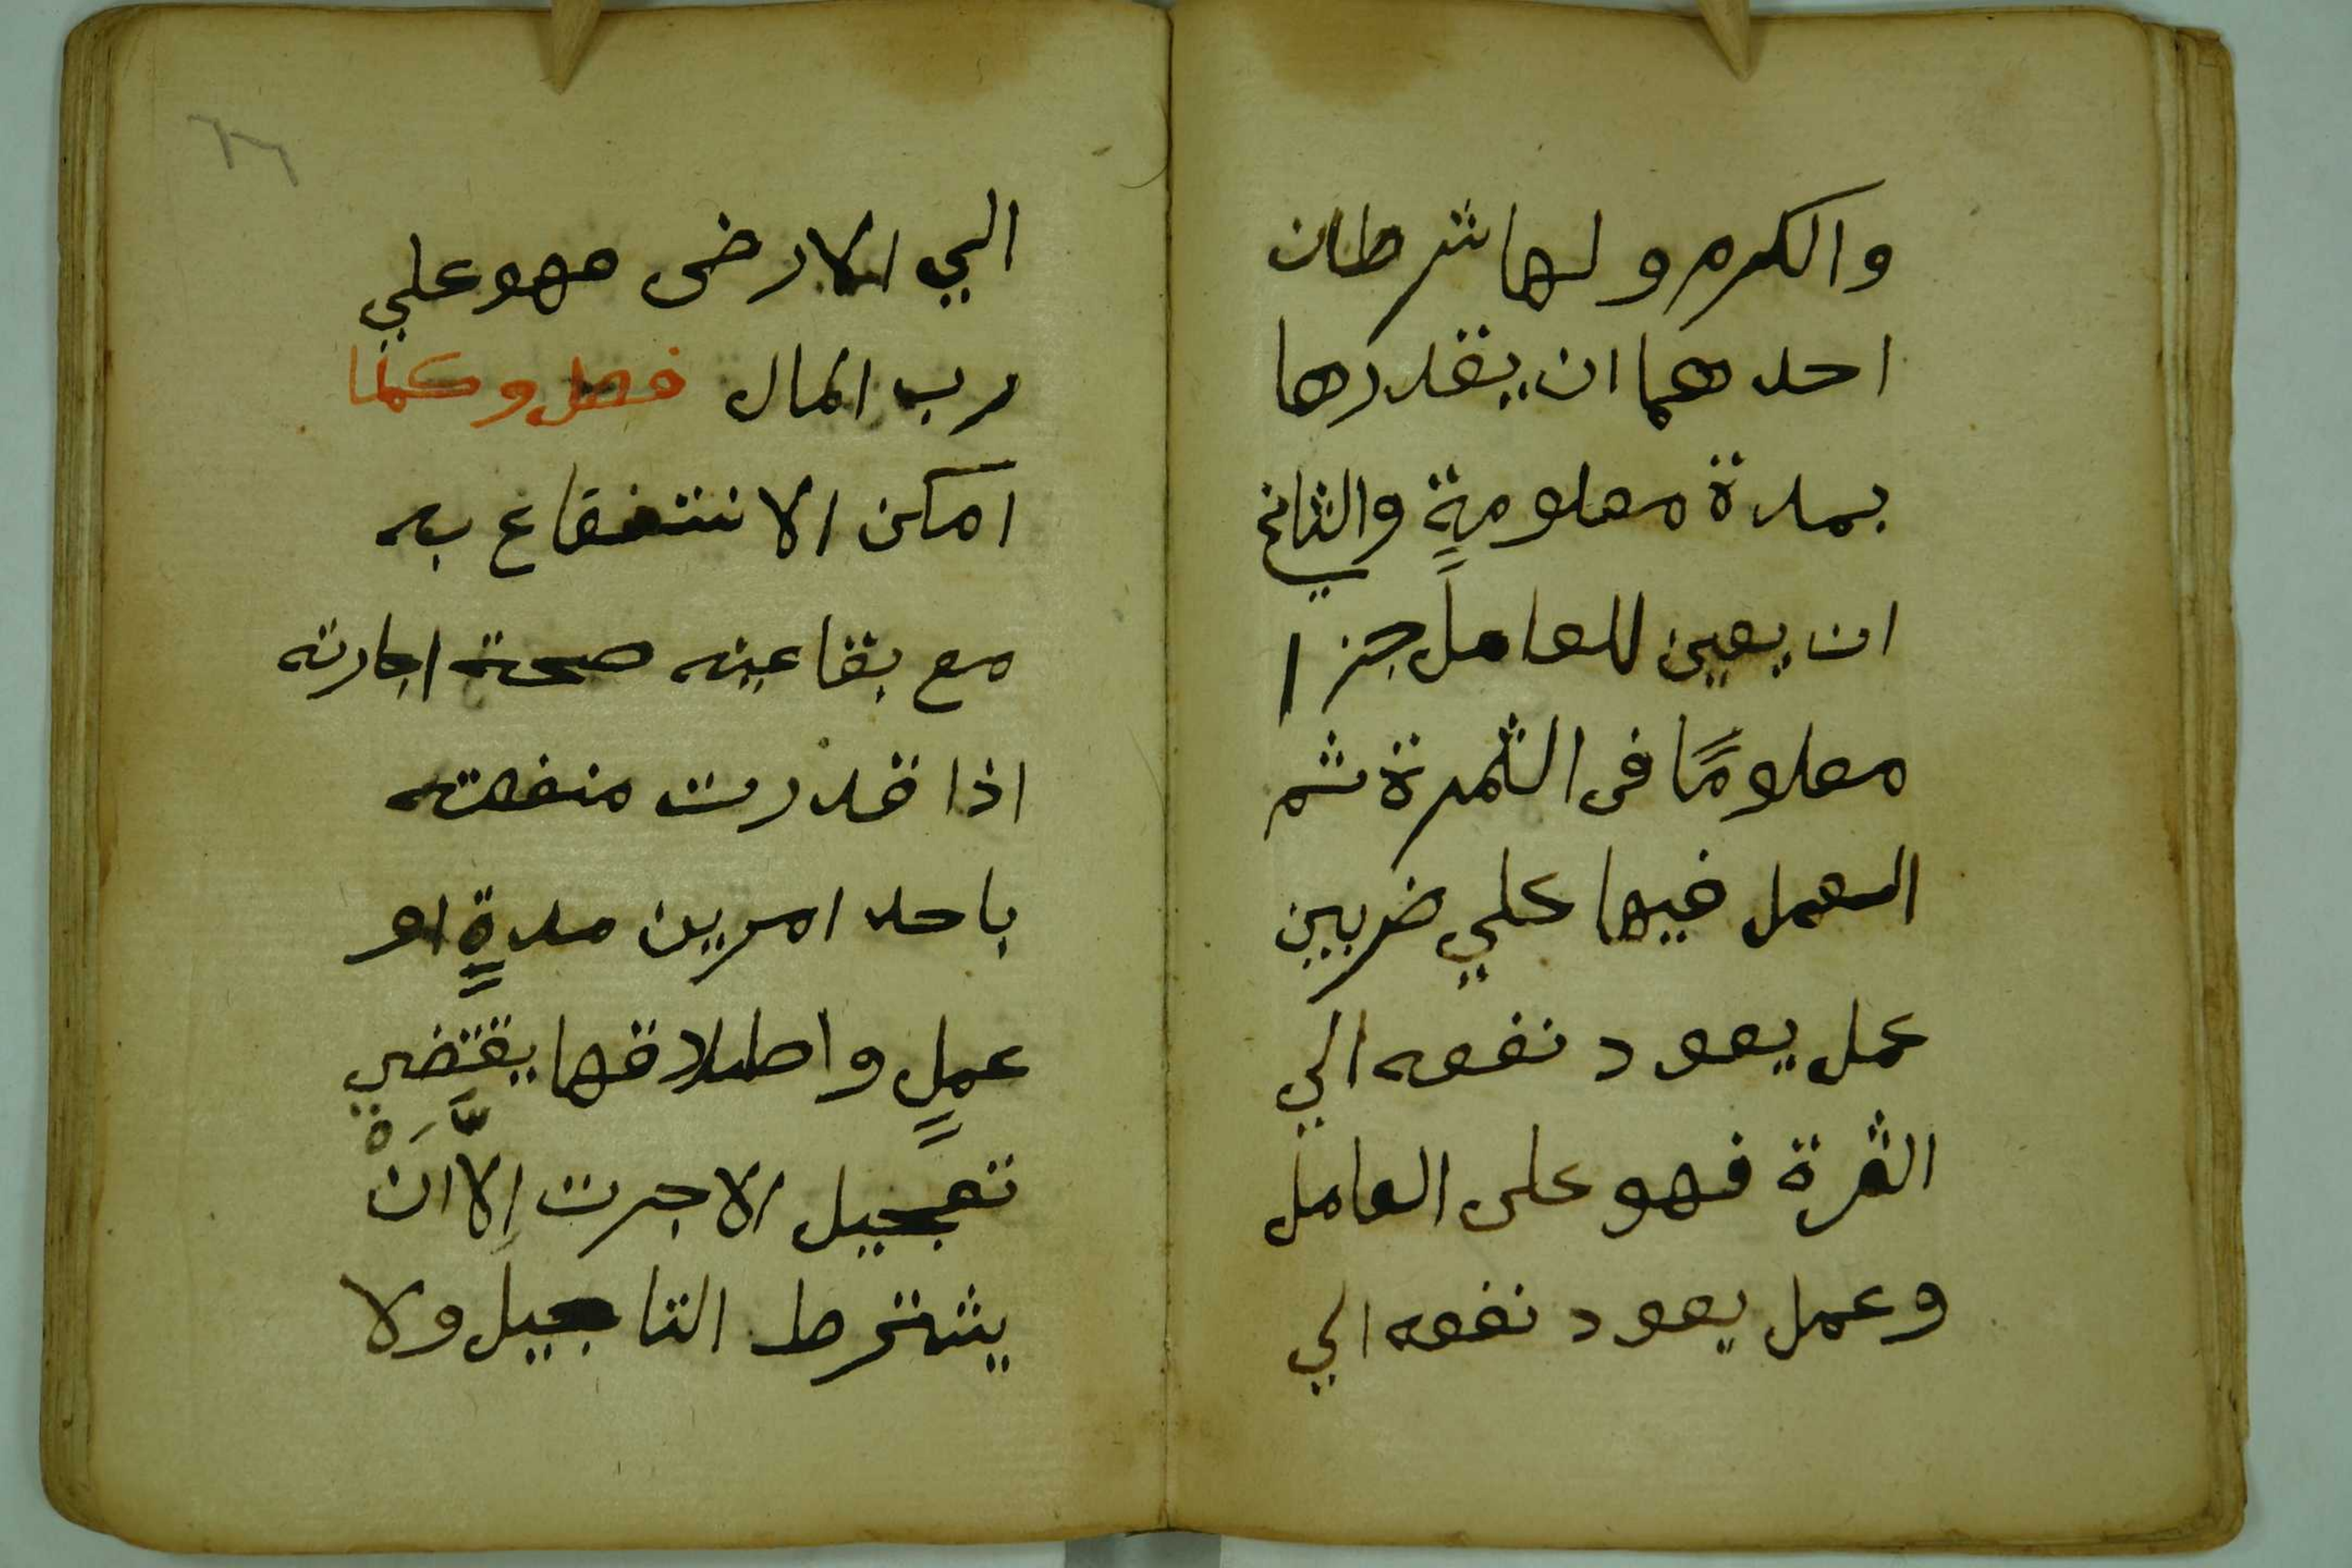 والكرم ولها شرطان
احدهما ان يقدرها
بمدة معلومةٍ والثاني
ان يعين للعامل جزا
معلومًا في الثمرة ثم
العمل فيها علي ضربين
عمل يعود نفعه الي
الثمرة فهو على العامل
وعمل يعود نفعه الي
٢٦
الي الارض فهو علي
رب المال فصل وكلما
امكن الانتفاع به
مع بقا عينه صحة اجارته
اذا قدرت منفعته
باحد امرين مدةٍ او
عملٍ واطلاقها يقتضي
تعجيل الاجرت الا ان
يشترط التاجيل ولا